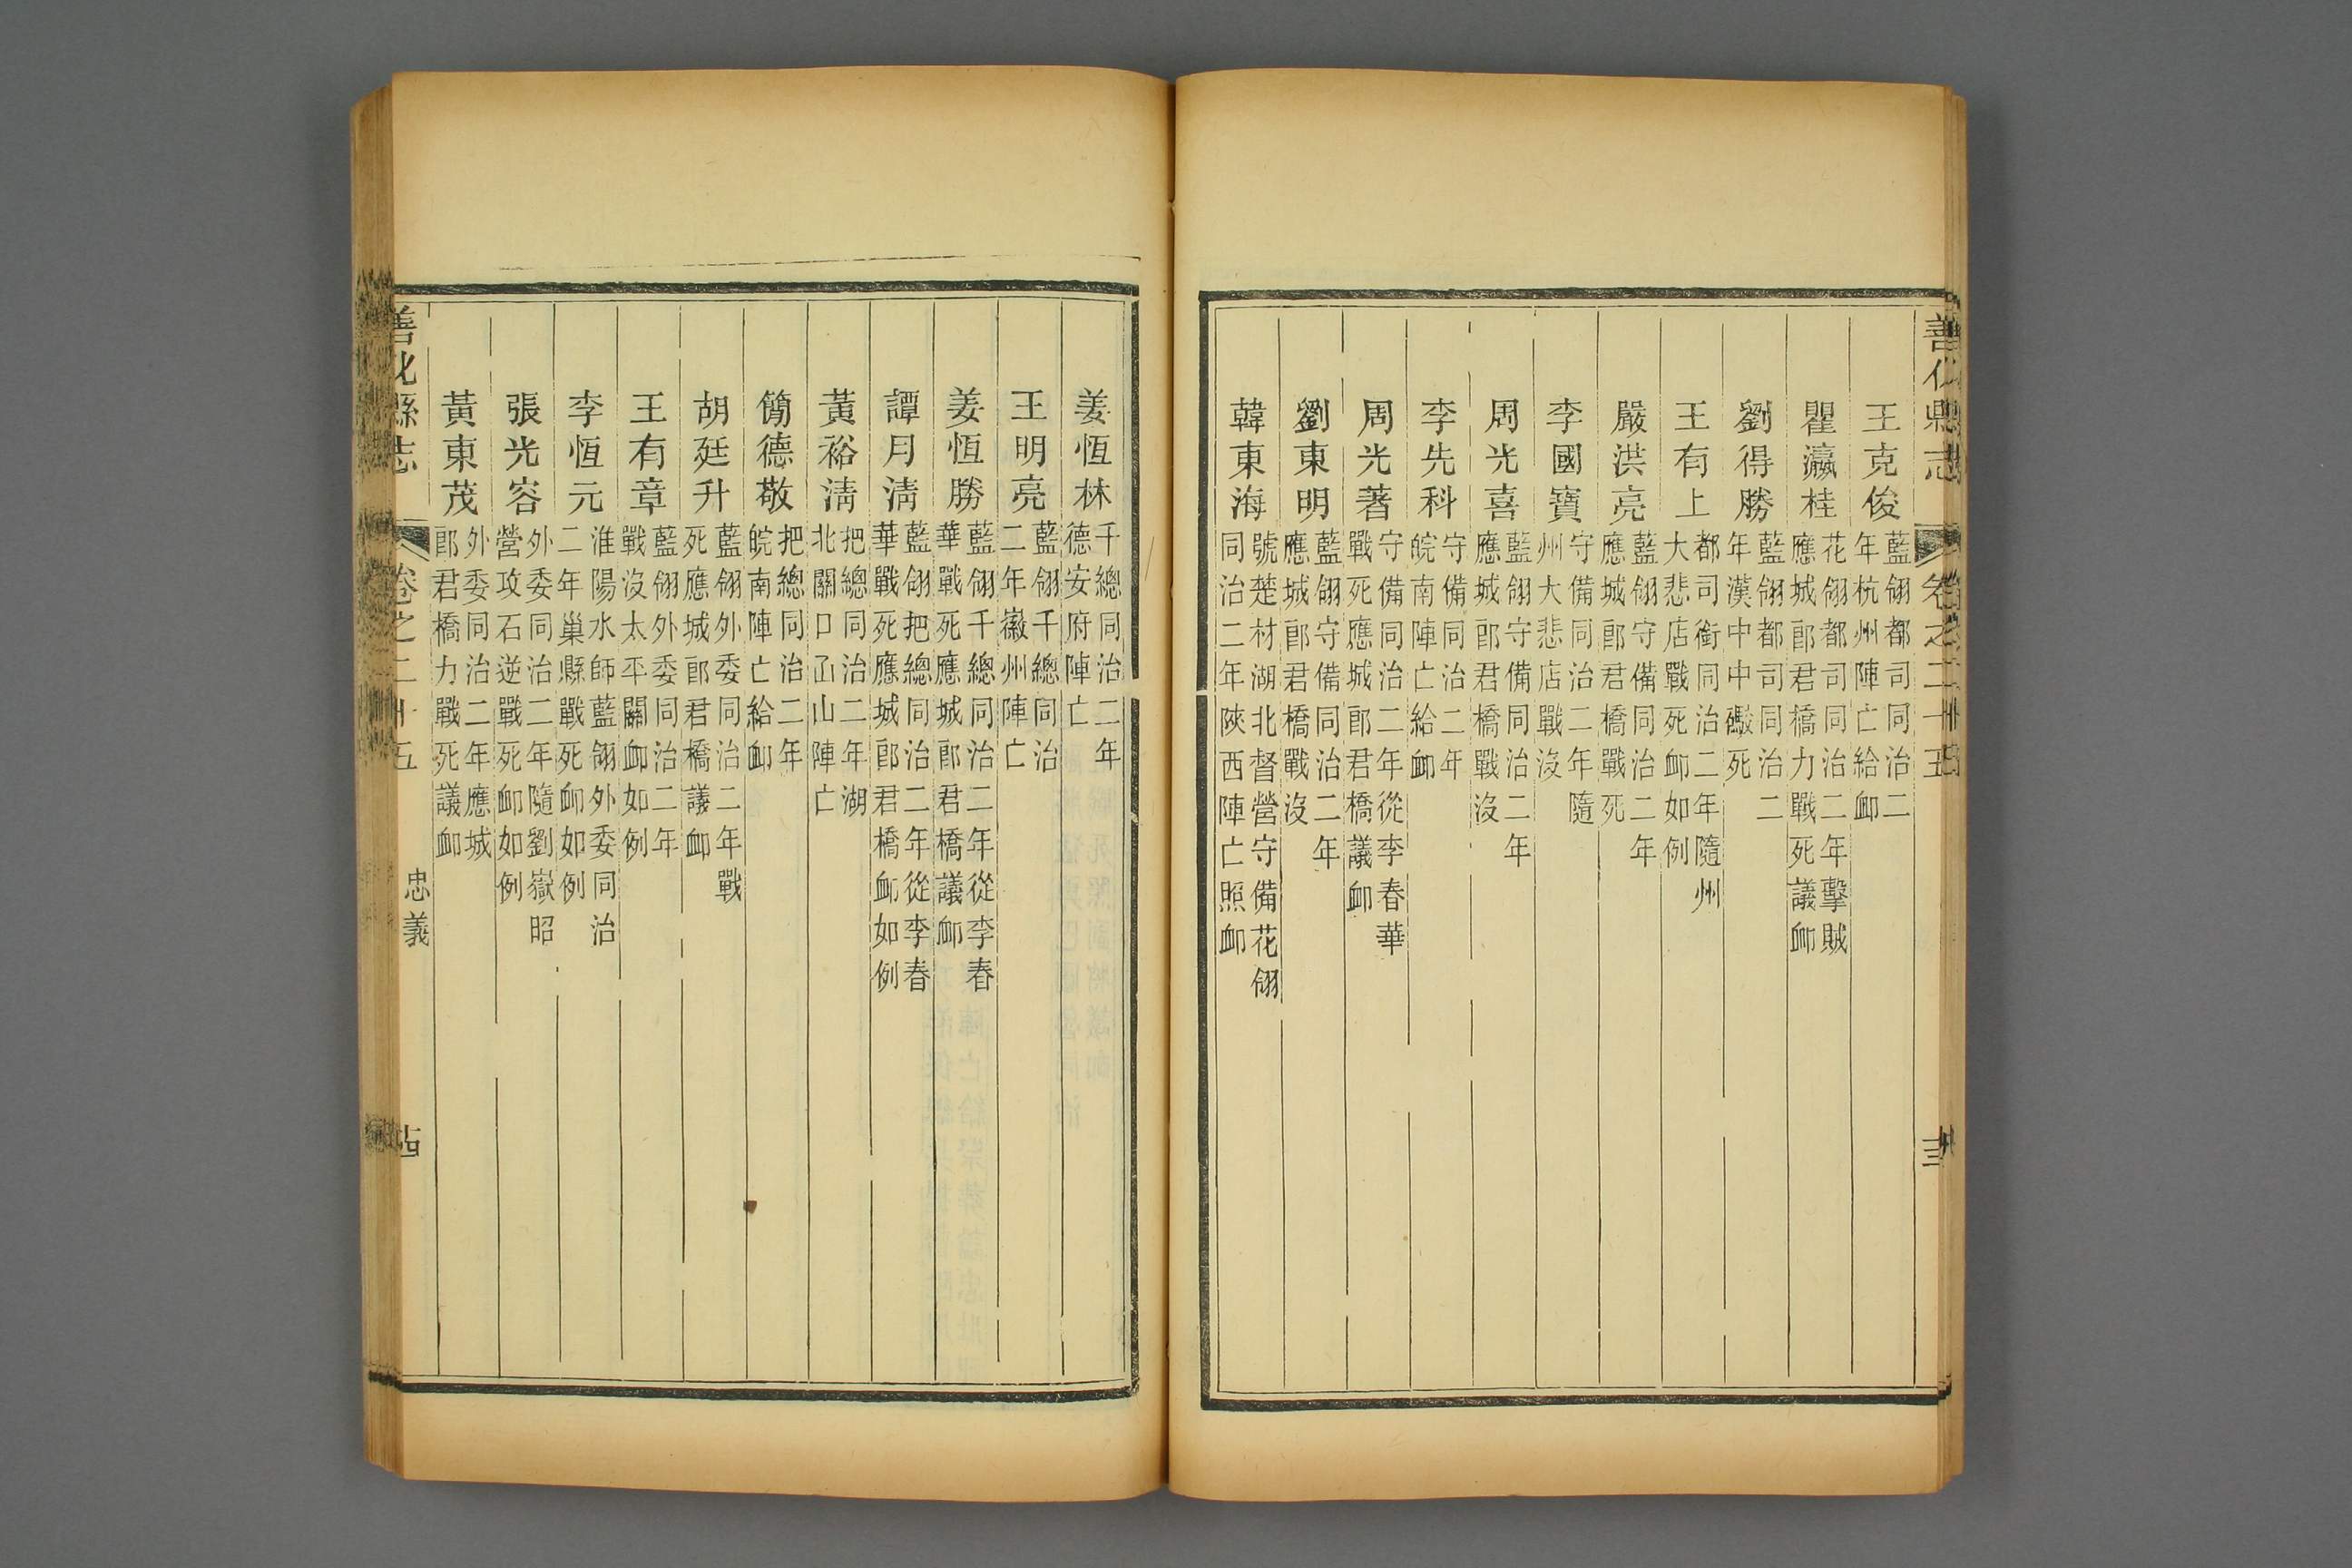 善化縣志
卷之二十五
王克俊 藍翎都司同治二
年杭州陣亡給卹
瞿瀛桂 花翎都司同治二年擊賊
應城郎君橋力戰死議卹
劉得勝 藍翎都司同治二
年漢中中礮死
王有上 都司銜同治二年隨州
大悲店戰死卹如例
嚴洪亮 藍翎守備同治二年
應城郎君橋戰死
李國寶 守備同治二年隨
州大悲店戰沒
周光喜 藍翎守備同治二年
應城郎君橋戰沒
李先科 守備同治二年
皖南陣亡給卹
周光著 守備同治二年從李春華
戰死應城郎君橋議卹
劉東明 藍翎守備同治二年
應城郎君橋戰沒
韓東海 號楚材湖北督營守備花翎
同治二年陝西陣亡照卹
姜恆林 千總同治二年
德安府陣亡
王明亮 藍翎千總同治
二年徽州陣亡
姜恆勝 藍翎千總同治二年從李春
華戰死應城郎君橋議卹
譚月清 藍翎把總同治二年從李春
華戰死應城郎君橋卹如例
黃裕清 把總同治二年湖
北關口峀山陣亡
簡德敬 把總同治二年
皖南陣亡給卹
胡廷升 藍翎外委同治二年戰
死應城郎君橋議卹
王有章 藍翎外委同治二年
戰沒太平關卹如例
李恆元 淮陽水師藍翎外委同治
二年巢縣戰死卹如例
張光容 外委同治二年隨劉嶽昭
營攻石逆戰死卹如例
黃東茂 外委同治二年應城
郎君橋力戰死議卹
善化縣志
卷之二十五
忠義